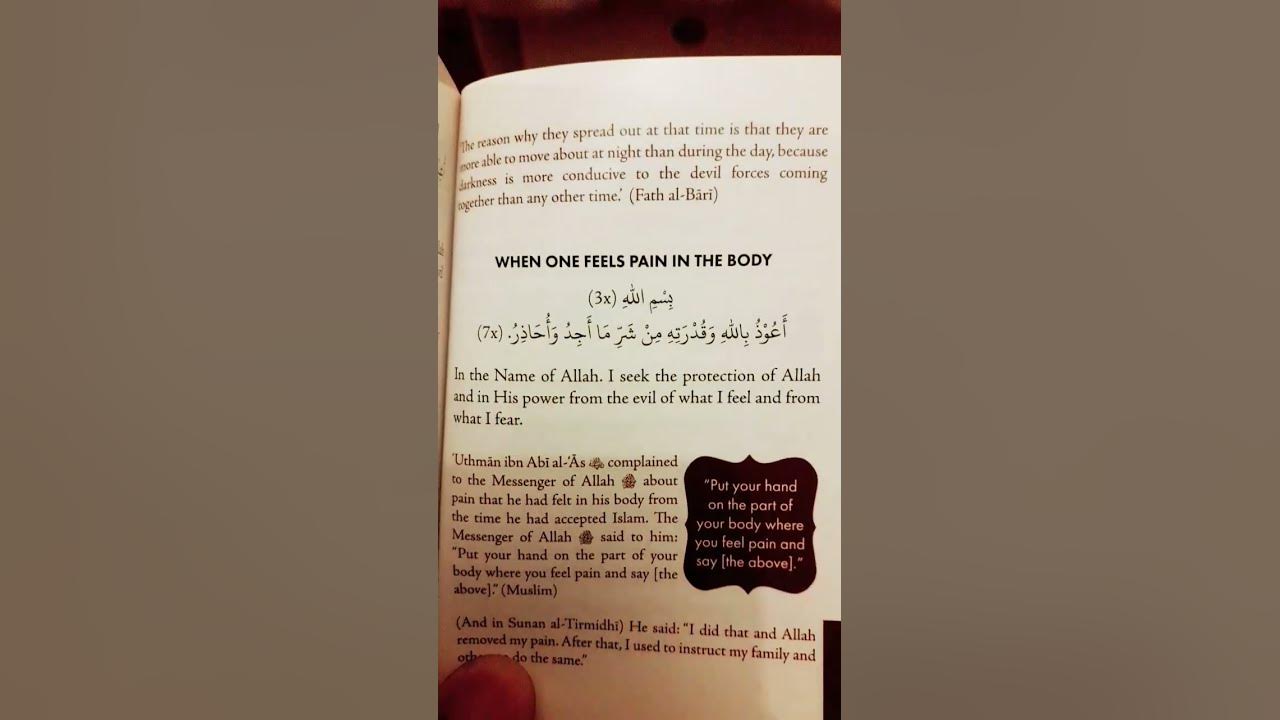 'The reason why they spread out at that time is that they are
more able to move about at night than during the day, because
darkness is more conducive to the devil forces coming
together than any other time.' (Fath al-Bārī)
WHEN ONE FEELS PAIN IN THE BODY
بِسْمِ اللهِ (3x)
أَعُوْذُ بِاللهِ وَقُدْرَتِهِ مِنْ شَرِّ مَا أَجِدُ وَأُحَاذِرُ. (7x)
In the Name of Allah. I seek the protection of Allah
and in His power from the evil of what I feel and from
what I fear.
ʿUthmān ibn Abī al-ʿĀs complained
to the Messenger of Allah ﷺ about
pain that he had felt in his body from
the time he had accepted Islam. The
Messenger of Allah ﷺ said to him:
"Put your hand on the part of your
body where you feel pain and say [the
above]." (Muslim)
"Put your hand
on the part of
your body where
you feel pain and
say [the above]."
(And in Sunan al-Tirmidhī) He said: "I did that and Allah
removed my pain. After that, I used to instruct my family and
do the same."